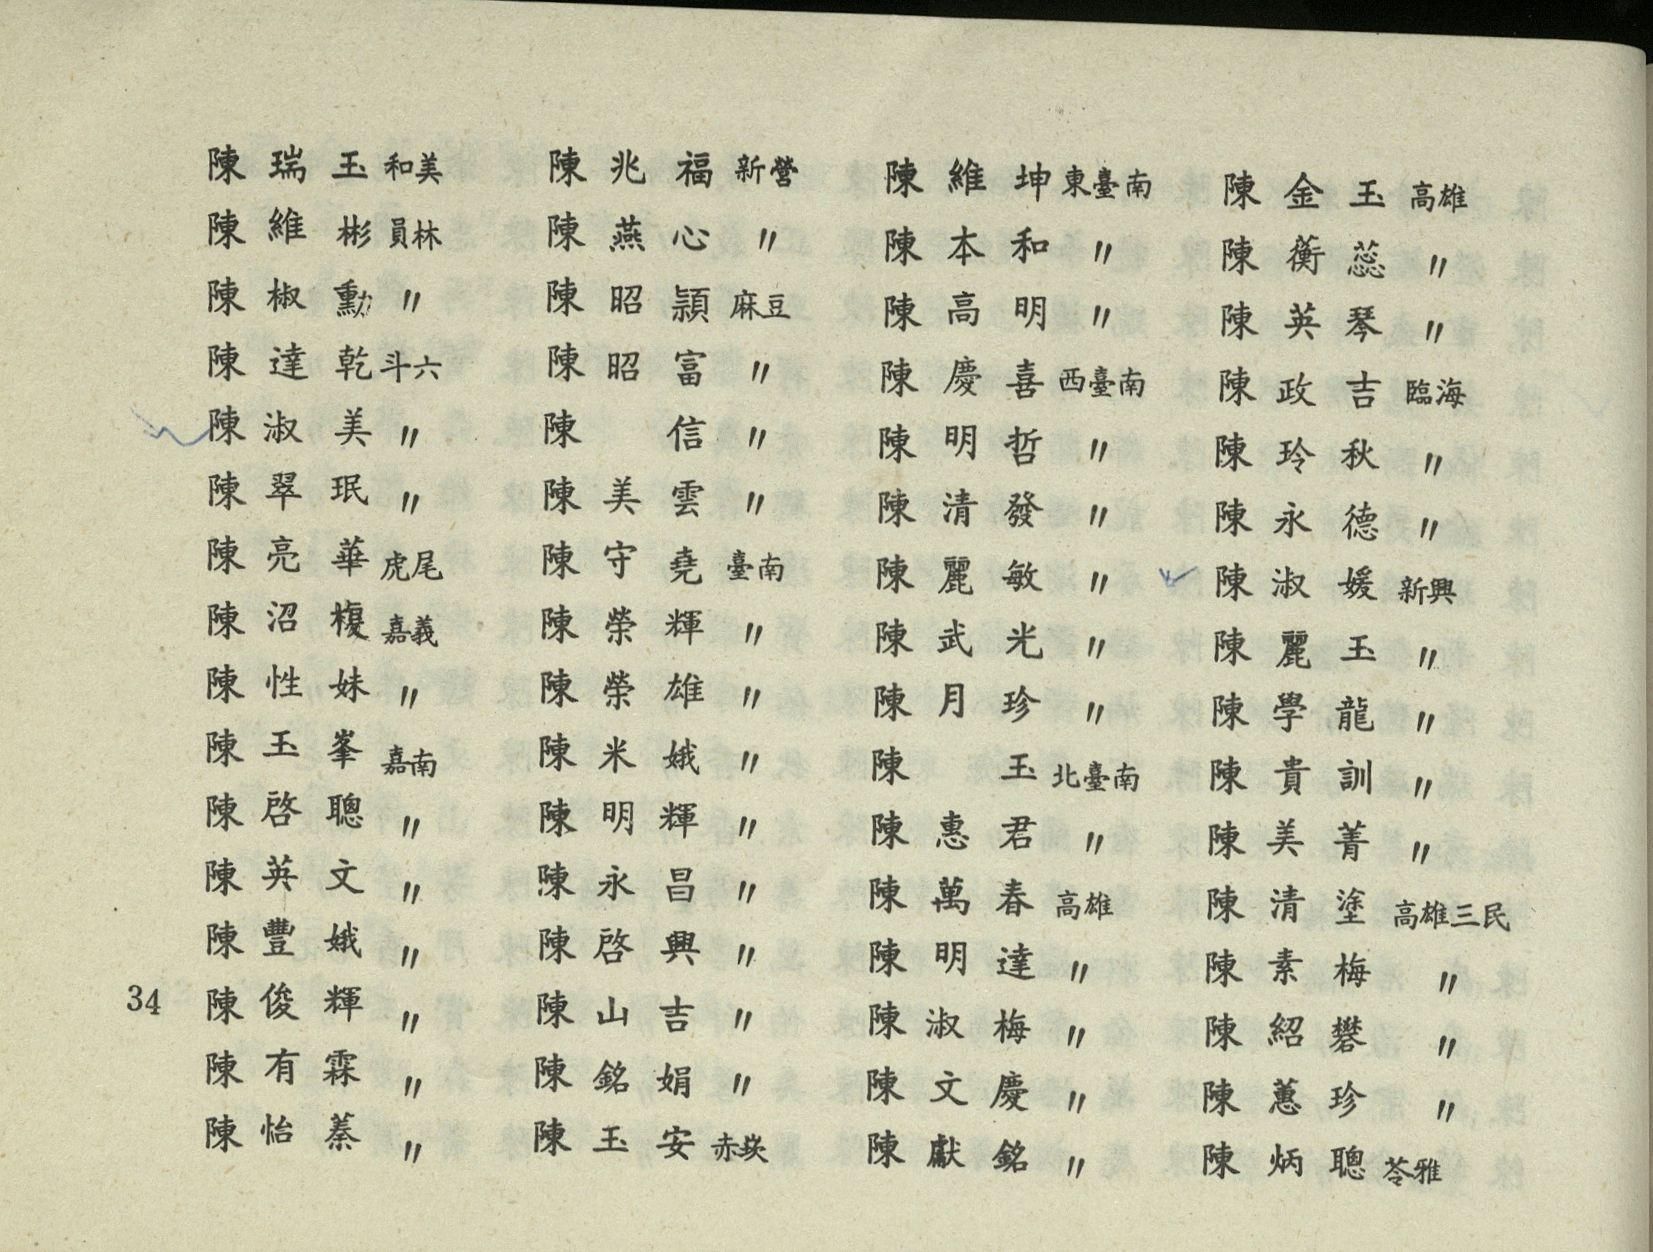 陳瑞玉 和美
陳維彬 員林
陳椒勳 〃
陳達乾 斗六
陳淑美 〃
陳翠珉 〃
陳亮華 虎尾
陳沼榎 嘉義
陳性妹 〃
陳玉峯 嘉南
陳啓聰 〃
陳英文 〃
陳豐娥 〃
陳俊輝 〃
陳有霖 〃
陳怡蓁 〃
陳兆福 新營
陳燕心 〃
陳昭穎 麻豆
陳昭富 〃
陳信 〃
陳美雲 〃
陳守堯 臺南
陳榮輝 〃
陳榮雄 〃
陳米娥 〃
陳明輝 〃
陳永昌 〃
陳啓興 〃
陳山吉 〃
陳銘娟 〃
陳玉安 赤崁
陳維坤 東臺南
陳本和 〃
陳高明 〃
陳慶喜 西臺南
陳明哲 〃
陳清發 〃
陳麗敏 〃
陳武光 〃
陳月珍 〃
陳玉 北臺南
陳惠君 〃
陳萬春 高雄
陳明達 〃
陳淑梅 〃
陳文慶 〃
陳獻銘 〃
陳金玉 高雄
陳蘅蕊 〃
陳英琴 〃
陳政吉 臨海
陳玲秋 〃
陳永德 〃
陳淑媛 新興
陳麗玉 〃
陳學龍 〃
陳貴訓 〃
陳美菁 〃
陳清塗 高雄三民
陳素梅 〃
陳紹礬 〃
陳蕙珍 〃
陳炳聰 苓雅
34